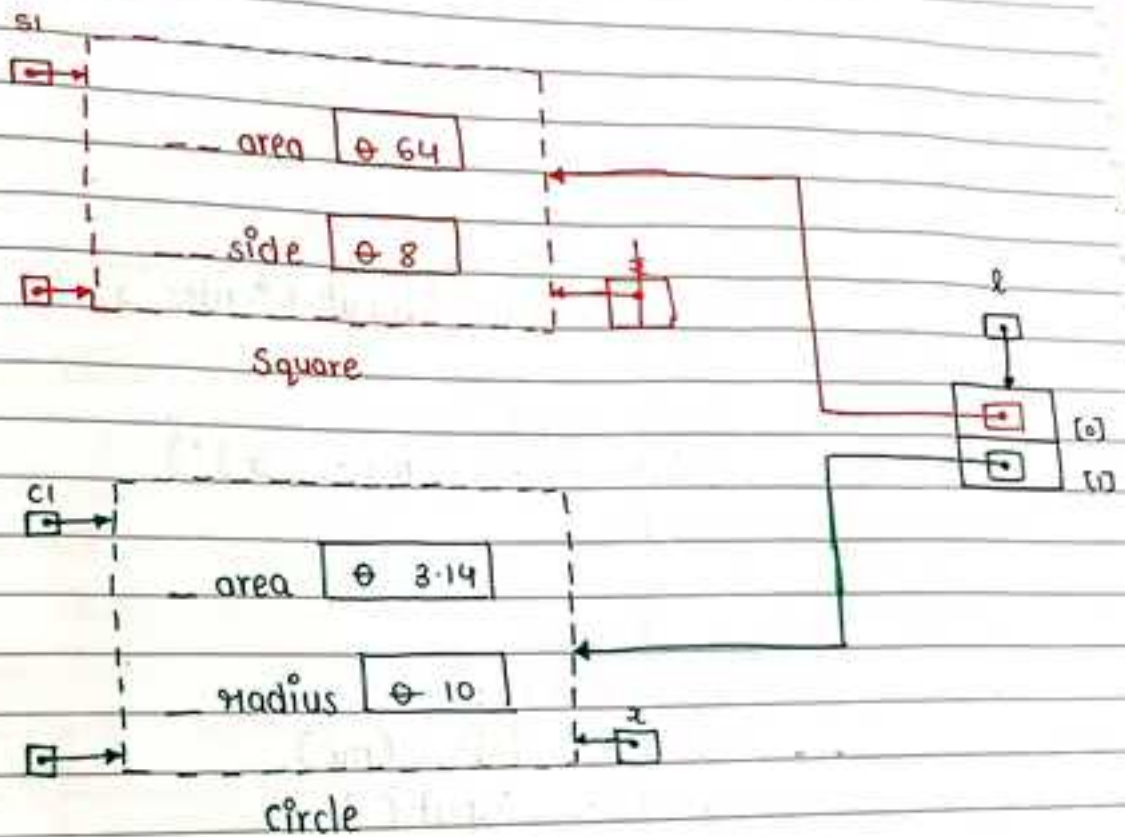 S1
__ area θ 64
__ side θ 8
Square
l
[0]
[1]
C1
_ area θ 3.14
_ radius θ 10
x
Circle